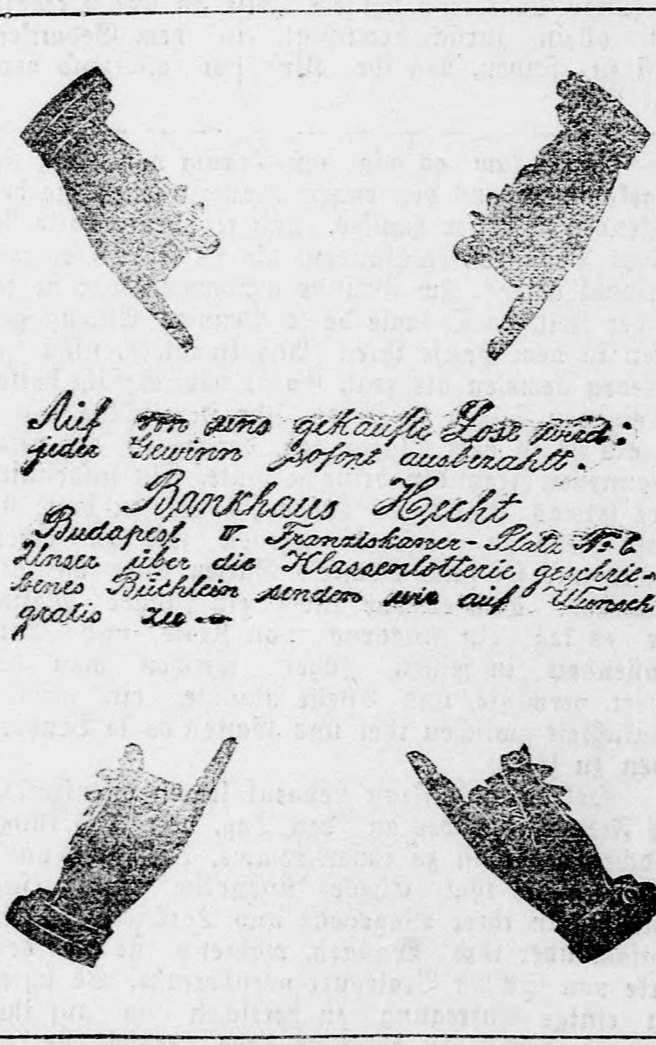 Auf von uns gekaufte Lose wird
jeder Gewinn sofort ausbezahlt.
Bankhaus Hecht
Budapest IV. Franziskaner-Platz Nr. 6
Unser über die Klassenlotterie geschrie-
benes Büchlein senden wir auf Wunsch
gratis zu